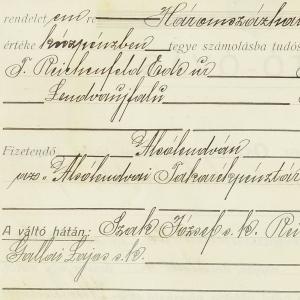 rendelet em re Háromszázhar
értéke készpénzben tegye számolásba tudós
T. Reichenfeld Ede úr
Lendvaujfalu
Fizetendő Alsólendván
az „Alsólendvai Takarékpénztár
A váltó hátán: Szak József s. k. Rei
Gállai Lajos s. k.